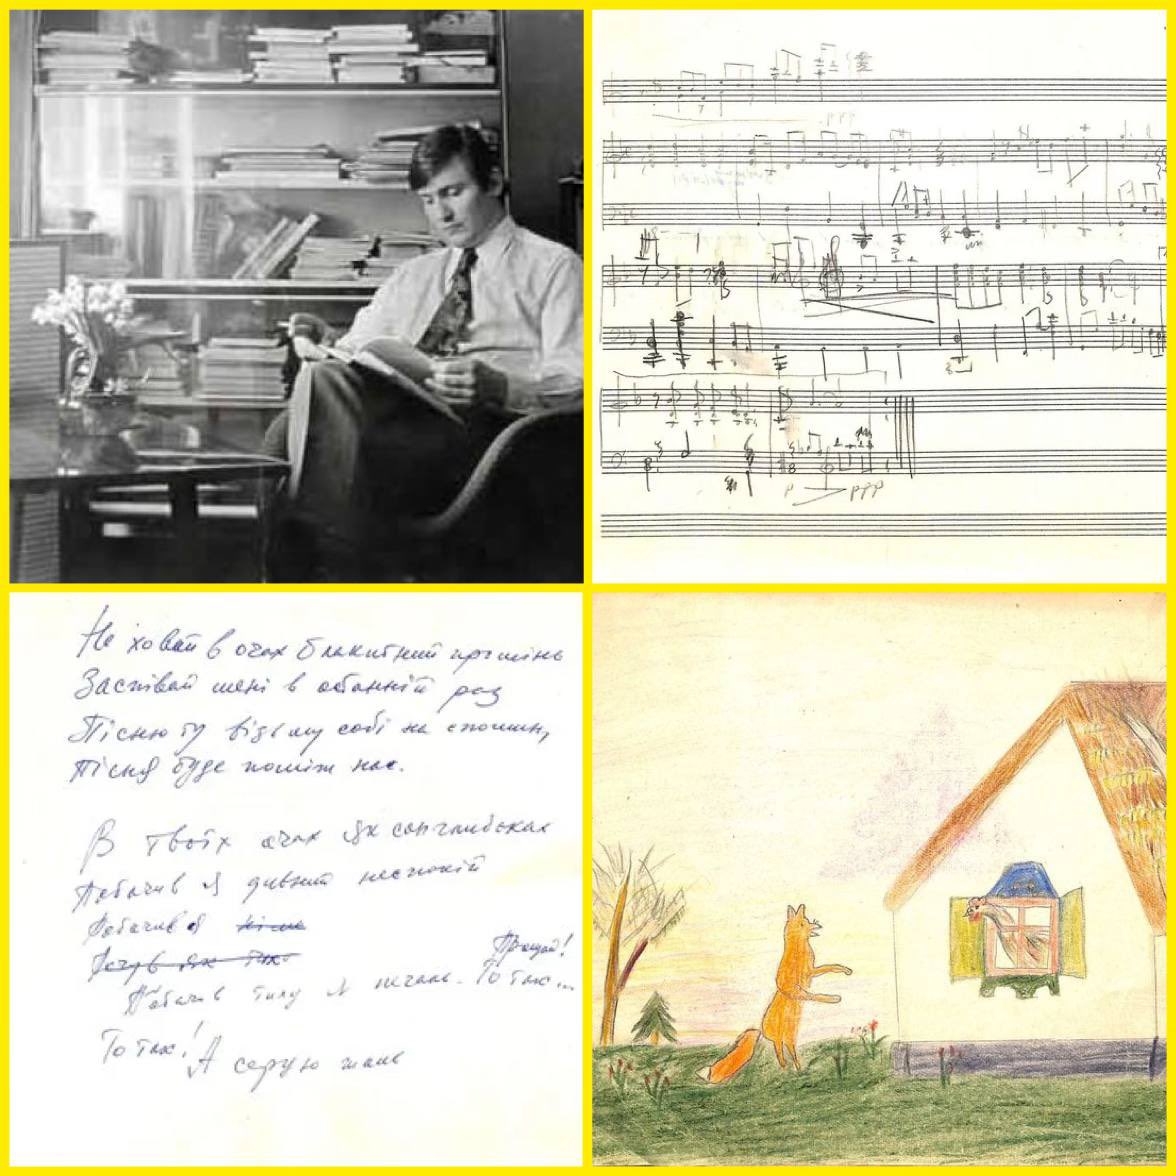 Не ховай в очах блакитний промінь
Заспівай мені в останній раз
Пісню ту візьму собі на спомин,
Пісня буде поміж нас.
В твоїх очах як
Побачив я дивний неспокій
Побачив я
Прощай!
Побачив тугу я печаль. То так...
То так! А серцю жаль
p ppp